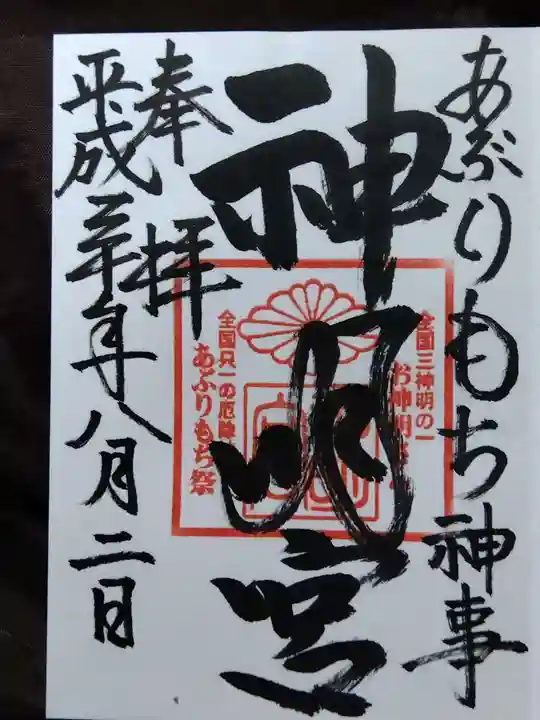 あぶりもち神事
神明宮
奉拝
平成三十年八月二日
全国三神明の一
お神明
全国只一の厄除
あぶりもち祭